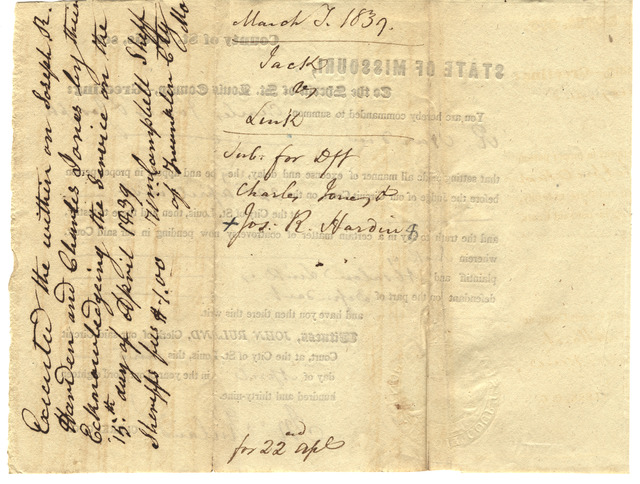 Executed the within on Joseph R.
Harden and Charles Jones by their
Ecknowledging the Service on the
15th day of April 1839
Wm Campbell Shff
Sheriffs fees $1.00 of Franklin Cty Mo
March T. 1839.
Jack
vs
Link
Sub. for Dft
Charles Jones &
+Jos. R. Hardin
for 22nd apl
STATE OF MISSOURI
County of St.
To the
of St. Louis County, Greeting:
You are hereby commanded to summon
that setting aside all manner of excuse and delay, they be and appear in proper person
before the Judge of our Circuit Court on the
at the City of St. Louis, then and there to testify
and the truth to say in a certain matter of controversy now pending in our said Court,
wherein
plaintiff and
defendant on the part of
and have you then there this writ.
Witness, JOHN RULAND, Clerk of our said Circuit
Court, at the City of St. Louis, this
day of
in the year
eighteen
hundred and thirty-nine.